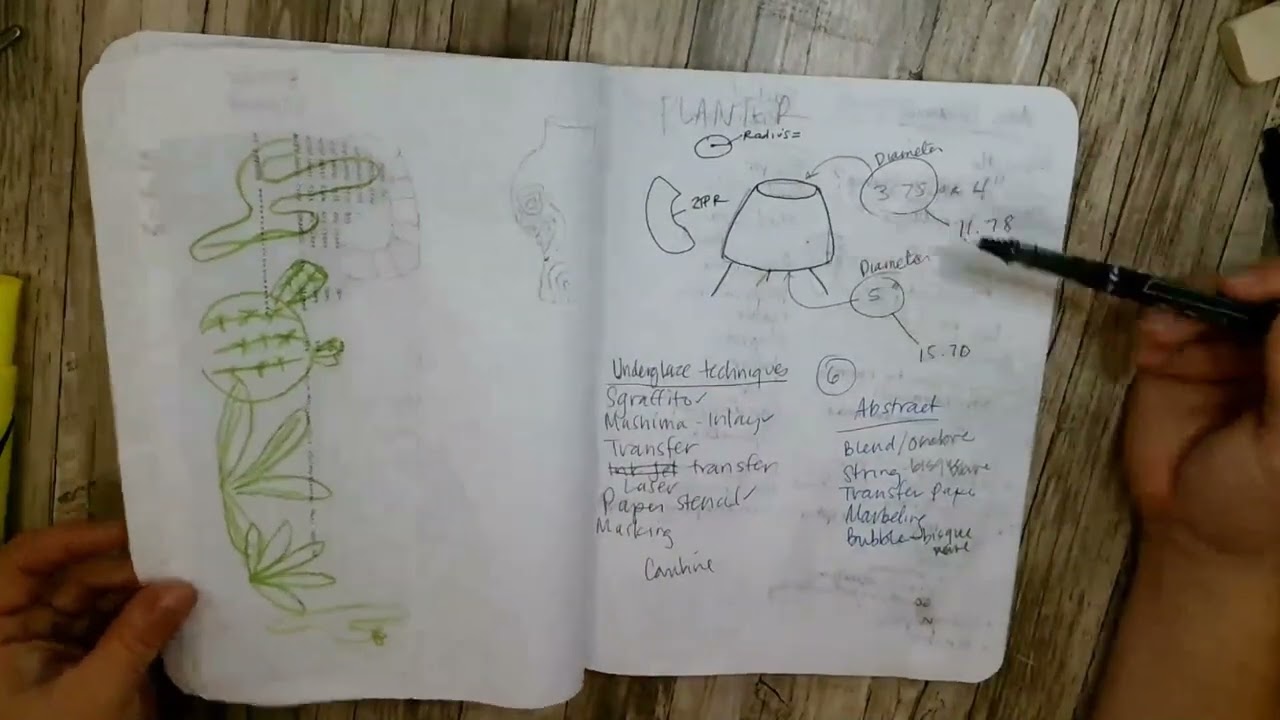 PLANTER
Radius=
Diameter
3.75 or 4"
2πR
11.78
Diameter
5"
15.70
Underglaze techniques
Sgraffito ✓
Mashima - Inlay ✓
Transfer
Ink Jet transfer
Laser
Paper stencil ✓
Masking
Combine
6
Abstract
Blend/
String bisqueware
Transfer paper
Marbeling
Bubble - bisque
ware